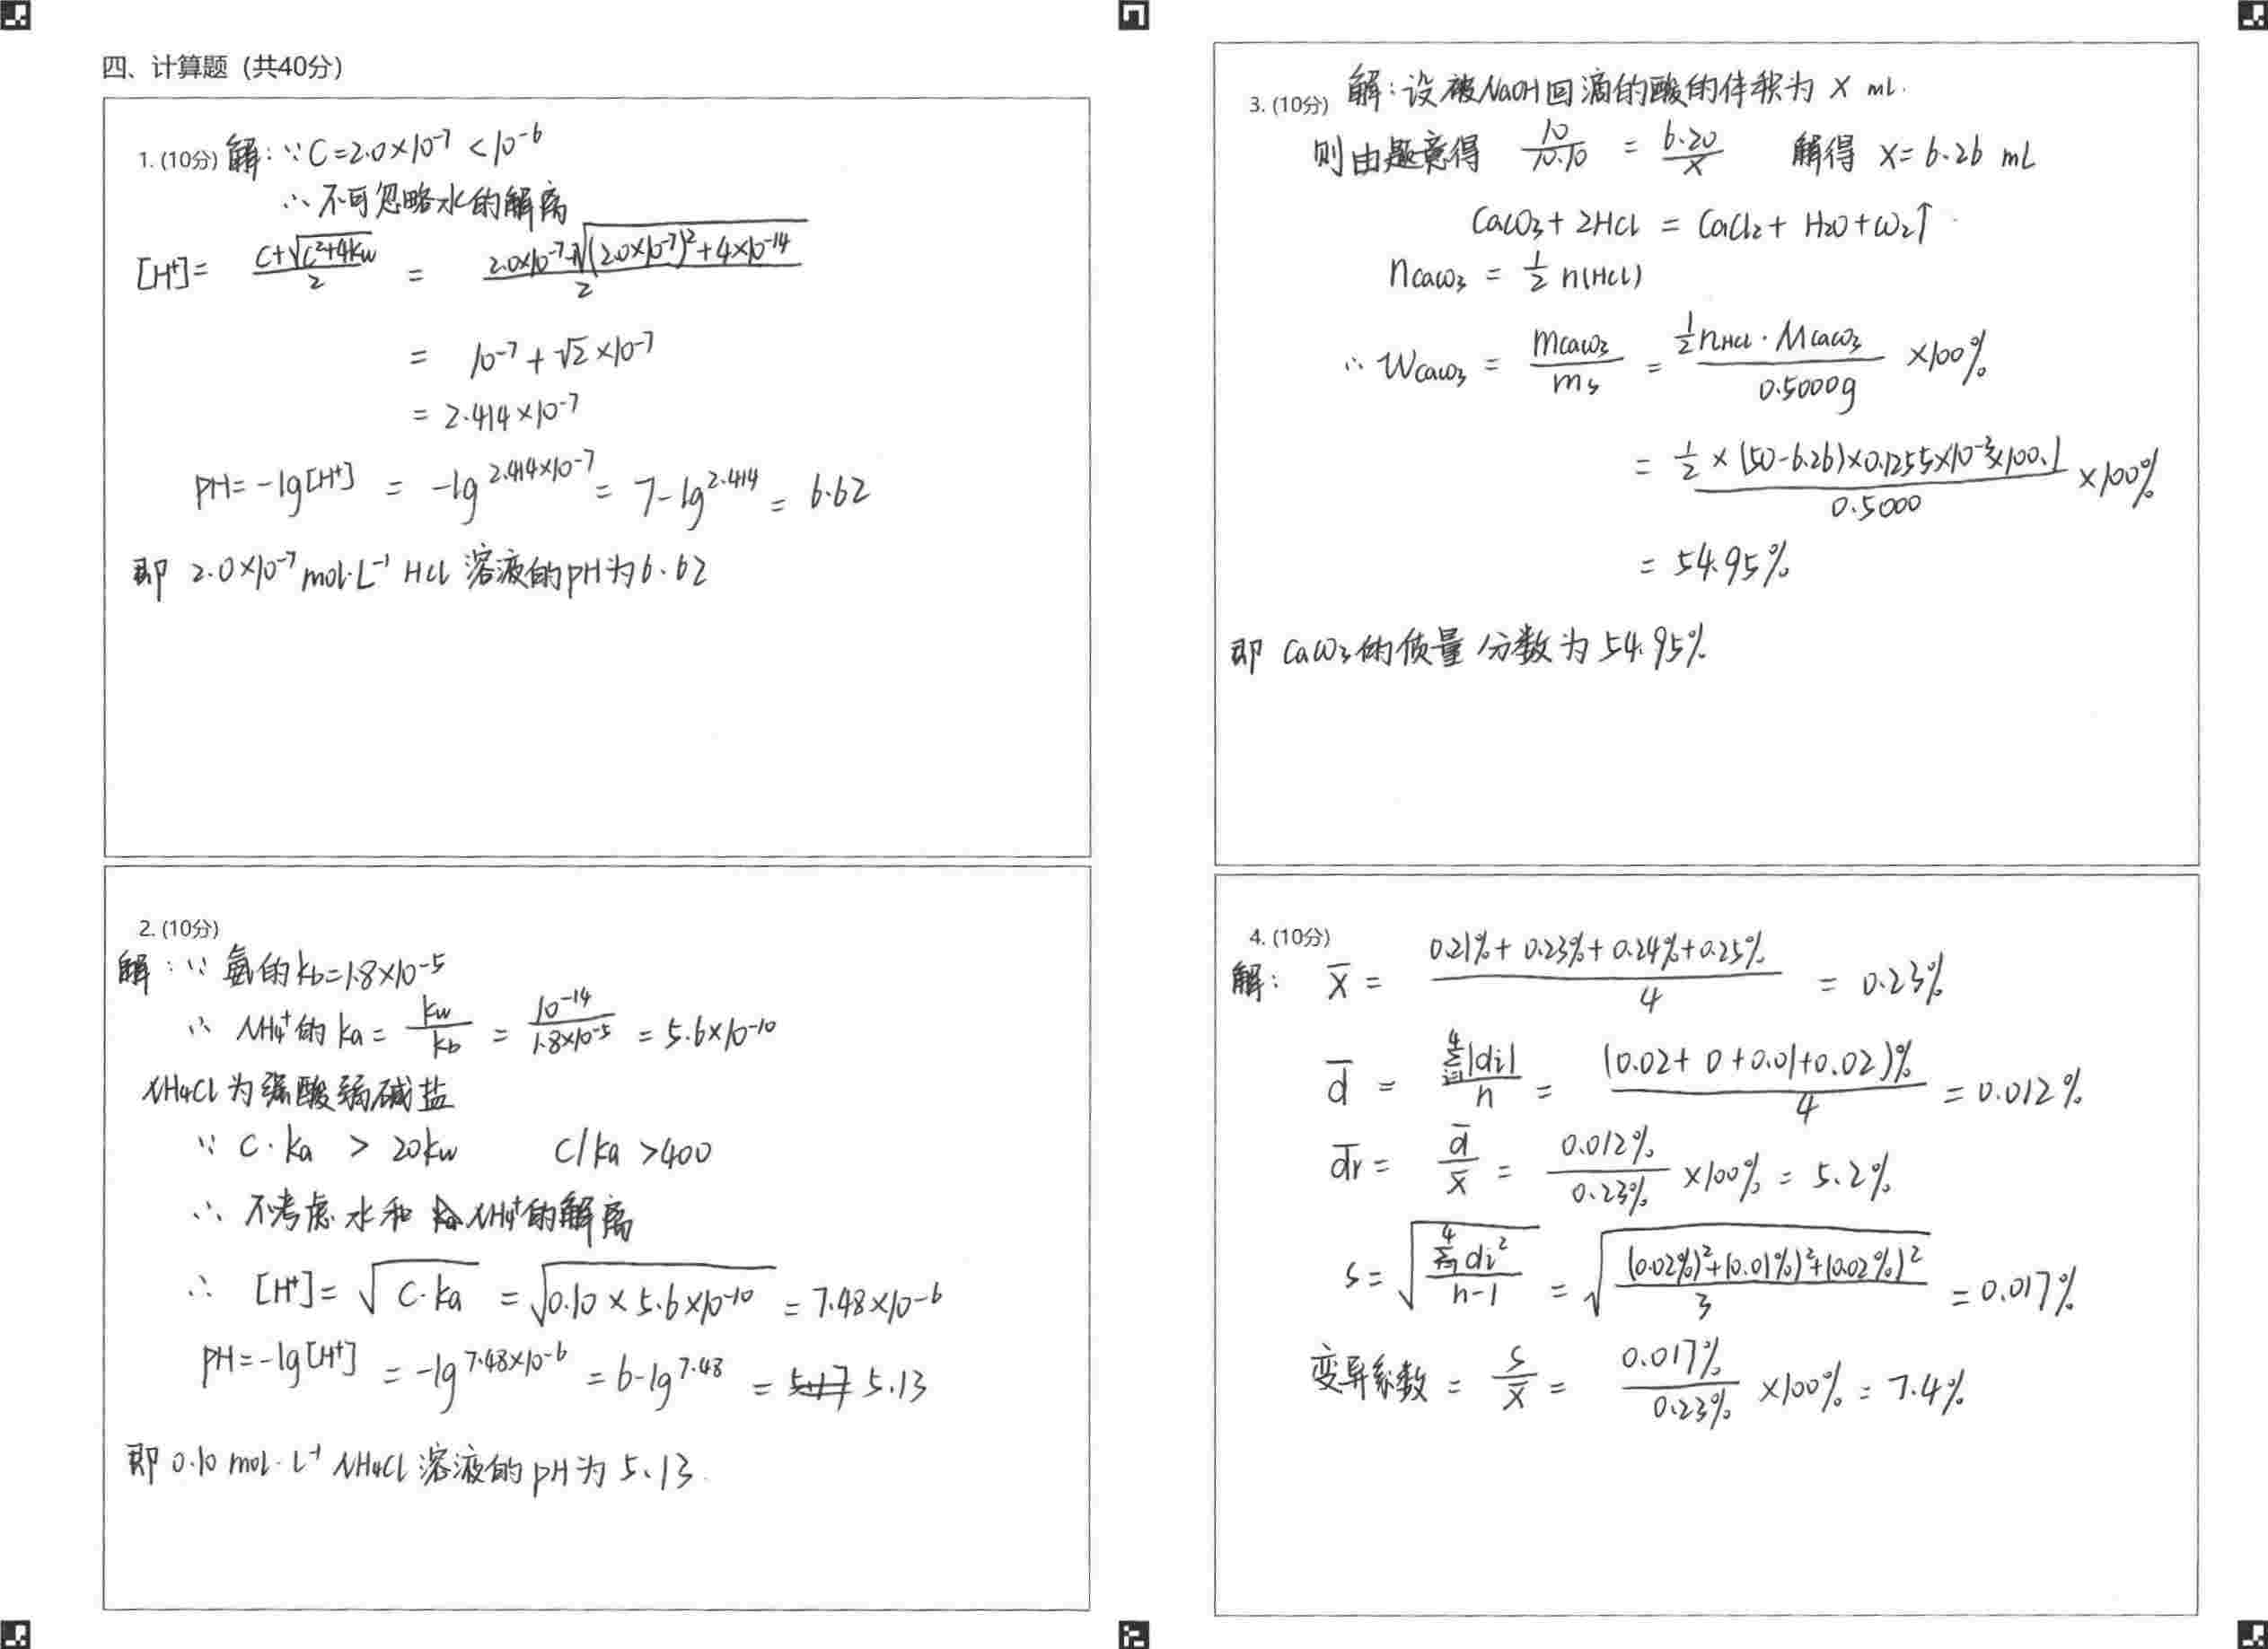 四、计算题（共40分）
1. (10分) 解：∵ C=2.0×10⁻⁷ < 10⁻⁶
∴ 不可忽略水的解离
[H⁺]= (C+√(C²+4Kw))/2 = (2.0×10⁻⁷+√((2.0×10⁻⁷)²+4×10⁻¹⁴))/2
= 10⁻⁷+√2×10⁻⁷
= 2.414×10⁻⁷
PH=-lg[H⁺] = -lg2.414×10⁻⁷ = 7-lg2.414 = 6.62
即 2.0×10⁻⁷ mol·L⁻¹ HCl 溶液的pH为6.62
2. (10分)
解：∵ 氨的kb=1.8×10⁻⁵
∴ NH₄⁺的 ka = kw/kb = 10⁻¹⁴/1.8×10⁻⁵ = 5.6×10⁻¹⁰
NH₄Cl为强酸弱碱盐
∵ C·ka > 20kw C/ka >400
∴ 不考虑水和 NH₄⁺的解离
∴ [H⁺]= √(C·ka) = √(0.10×5.6×10⁻¹⁰) = 7.48×10⁻⁶
PH=-lg[H⁺] = -lg7.48×10⁻⁶ = 6-lg7.48 = 5.13
即 0.10 mol·L⁻¹ NH₄Cl溶液的pH为 5.13.
3. (10分) 解：设被NaOH回滴的酸的体积为 x mL.
则由题意得 10/10.10 = 6.20/x 解得 x=6.26 mL
CaCO₃+2HCl = CaCl₂+H₂O+CO₂↑
nCaCO₃ = 1/2 n(HCl)
∴ WCaCO₃ = mCaCO₃/ms = (1/2 nHCl·MCaCO₃)/0.5000g ×100%
= (1/2×(50-6.26)×0.1255×10⁻³×100.1)/0.5000 ×100%
= 54.95%
即 CaCO₃的质量分数为 54.95%
4. (10分)
解： x̄ = (0.21%+0.23%+0.24%+0.25%)/4 = 0.23%
d̄ = Σ|di|/n = (0.02+0+0.01+0.02)%/4 = 0.012%
d̄r = d̄/x̄ = 0.012%/0.23% ×100% = 5.2%
s= √(Σdi²/(n-1)) = √(((0.02%)²+(0.01%)²+(0.02%)²)/3) = 0.017%
变异系数 = s/x̄ = 0.017%/0.23% ×100% = 7.4%